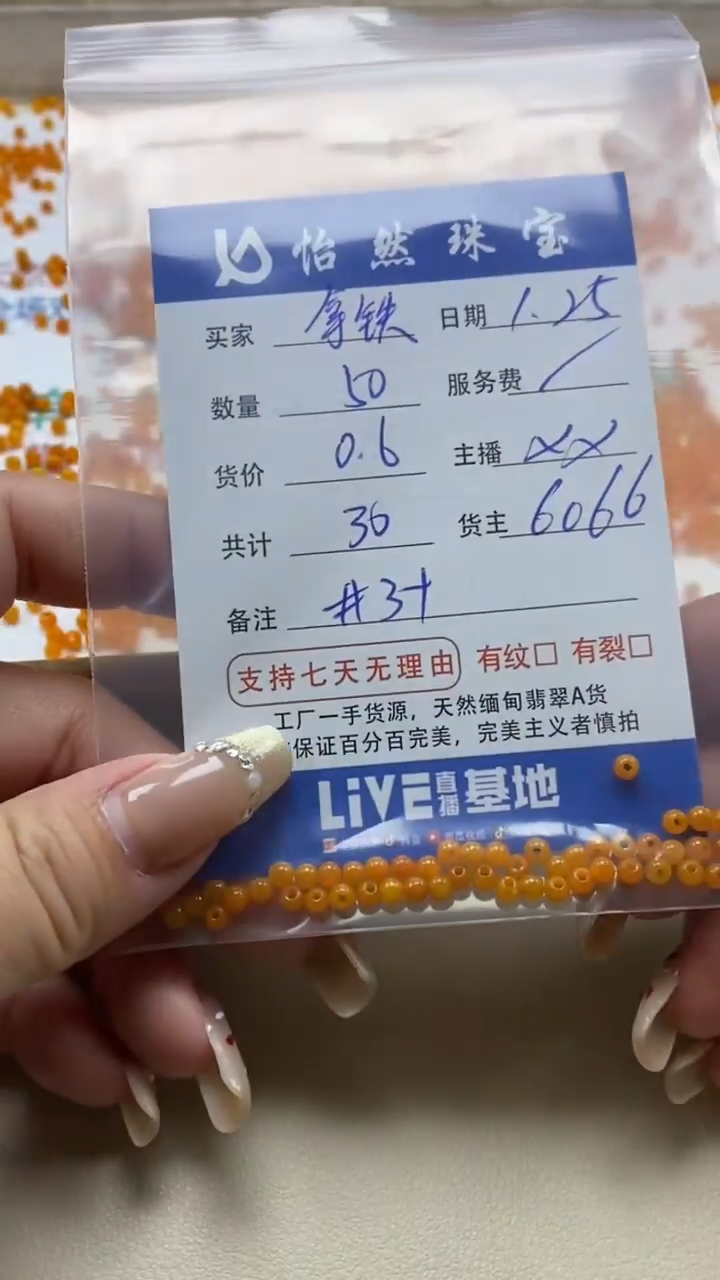 怡然珠宝
买家 拿铁 日期 1.25
数量 50 服务费 /
货价 0.6 主播 XX
共计 30 货主 6066
备注 #3十
支持七天无理由 有纹□ 有裂□
工厂一手货源，天然缅甸翡翠A货
保证百分百完美，完美主义者慎拍
LiVE直播基地